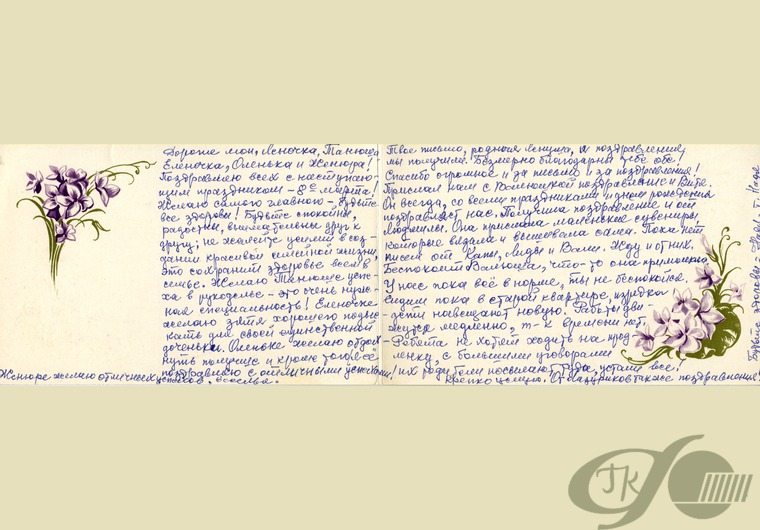 Дорогие мои, Леночка, Танюша
Еленочка, Оленька и Женюра!
Поздравляю всех с наступаю-
щим праздником - 8ое марта!
Желаю самого главного - будьте
все здоровы! Будьте спокойны,
радостны, внимательны друг к
другу; не жалейте усилий в соз-
дании красивой семейной жизни,
это сохранит здоровье всем в
семье. Желаю Танюше успе-
ха в рукоделье - это очень нуж-
ная специальность! Еленочке
желаю зятя хорошего подыс-
кать для своей единственной
доченьки. Оленьке желаю отдох-
нуть получше и кроме того всё
поздравляю с отличными успехами!
Женюре желаю отличных успехов, веселья.
Твоё письмо, родная Ленуша, и поздравление
мы получили. Безмерно благодарны тебе обе!
Спасибо огромное и за письмо и за поздравления!
Прислал нам с Валюшкой поздравление и Витя.
Он всегда, со всеми праздниками и днём рождения
поздравляет нас. Получила поздравление и от
Людмилы. Она прислала маленькие сувениры,
которые вязала и вышивала сама. Пока нет
писем от Кати, Лиды и Вали. Жду и от них.
Беспокоит Валюша, что-то она примолкла.
У нас пока всё в норме, ты не беспокойся.
Сидим пока в старой квартире, изредка
дети навещают новую. Работы дви-
жутся медленно, т-к времени нет.
Ребята не хотят ходить на прод-
лёнку, с большими уговорами
их родители посылают туда, устали все!
Крепко целую. От Мазуриков также поздравление!
Будьте здоровы! Твоя т. Надя
ГК